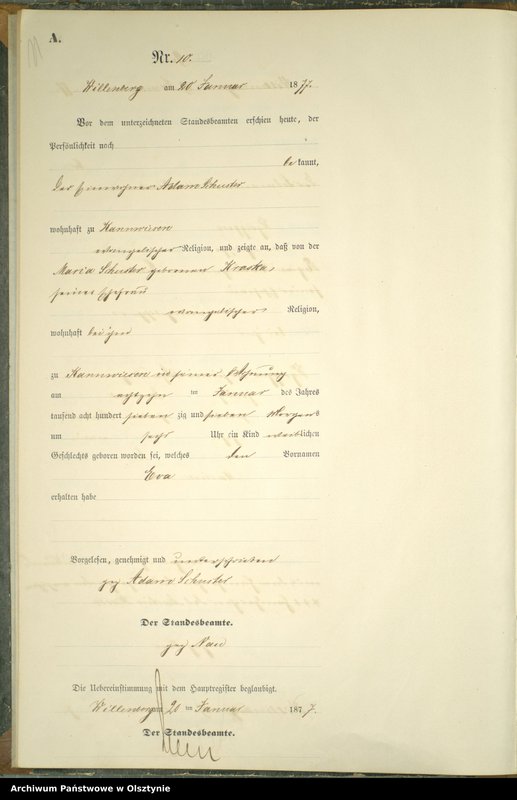 A.
Nr. 10.
Willenberg am 20 Januar 1877.
Vor dem unterzeichneten Standesbeamten erschien heute, der
Persönlichkeit nach
bekannt,
der Einwohner Adam Schuster
wohnhaft zu Kannwiesen
evangelischer Religion, und zeigte an, daß von der
Maria Schuster geborenen Kroska,
seiner Ehefrau
evangelischer Religion,
wohnhaft bei ihm
zu Kannwiesen in seiner Wohnung
am achtzehn ten Januar des Jahres
tausend acht hundert sieben zig und sieben Morgens
um sechs Uhr ein Kind weiblichen
Geschlechts geboren worden sei, welches den Vornamen
Eva
erhalten habe
Vorgelesen, genehmigt und unterschrieben
gez Adam Schuster
Der Standesbeamte.
gez
Die Uebereinstimmung mit dem Hauptregister beglaubigt.
Willenberg am 20 ten Januar 1877.
Der Standesbeamte.
Archiwum Państwowe w Olsztynie